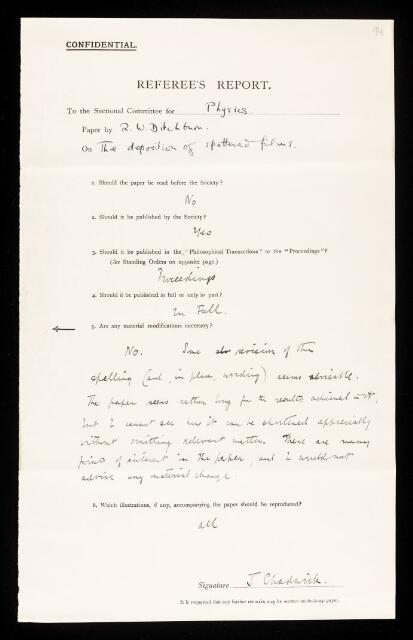 94
CONFIDENTIAL.
REFEREE'S REPORT.
To the Sectional Committee for Physics
Paper by R. W. Ditchburn.
On The deposition of sputtered films.
1. Should the paper be read before the Society?
No
2. Should it be published by the Society?
Yes
3. Should it be published in the "Philosophical Transactions" or the "Proceedings"?
(See Standing Orders on opposite page.)
Proceedings
4. Should it be published in full or only in part?
In Full.
5. Are any material modifications necessary?
No. Some revision of the
spelling (and, in places, wording) seems advisable.
The paper seems rather long for the results achieved in it,
but I cannot see how it can be shortened appreciably
without omitting relevant matter. There are many
points of interest in the paper, and I would not
advise any material change.
6. Which illustrations, if any, accompanying the paper should be reproduced?
all
Signature J. Chadwick.
It is requested that any further remarks may be written on foolscap paper.